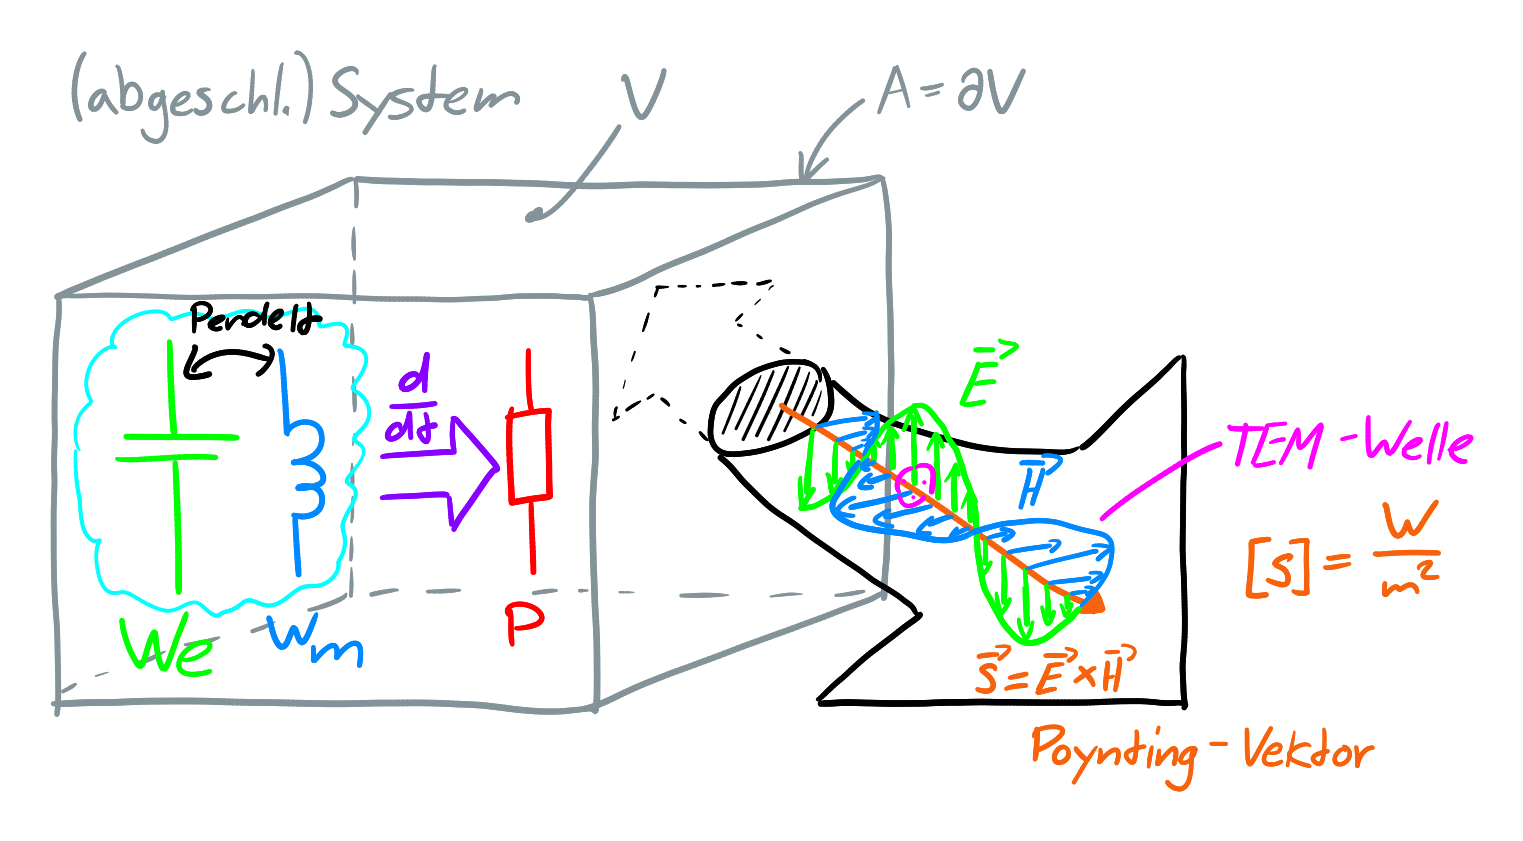 (abgeschl.) System
V
A = ∂V
Pendelt
d/dt
We
Wm
P
E⃗
H⃗
TEM-Welle
[S] = W/m²
S⃗ = E⃗ × H⃗
Poynting-Vektor